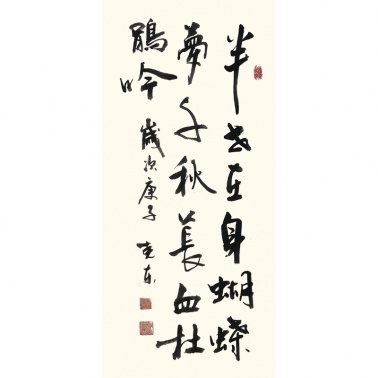 半世庄身蝴蝶
夢千秋萇血杜
鵑吟 歲次庚子